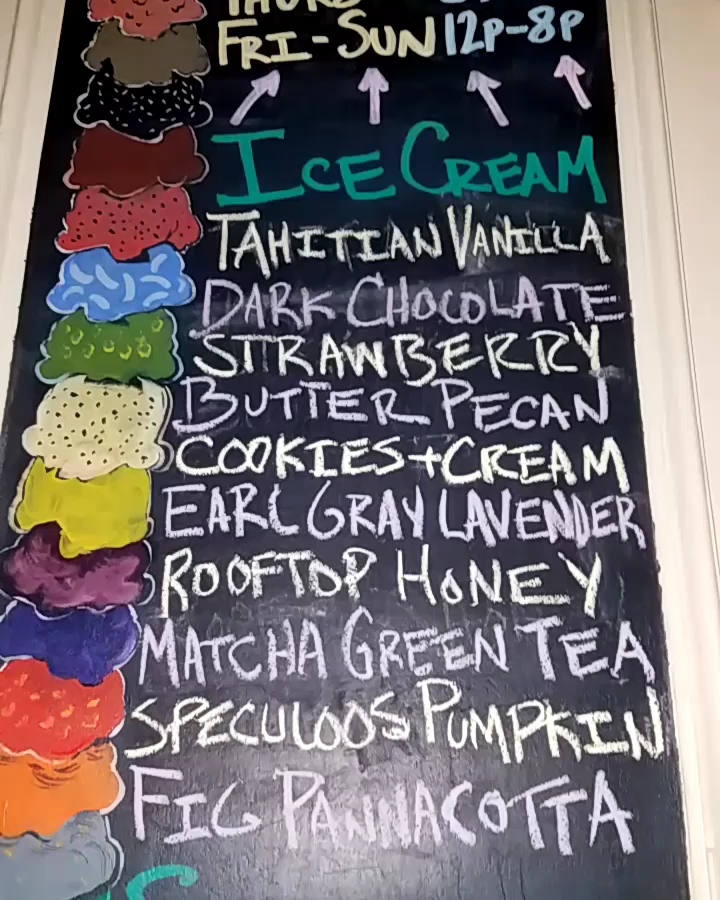 THURS
FRI-SUN 12P-8P
ICE CREAM
TAHITIAN VANILLA
DARK CHOCOLATE
STRAWBERRY
BUTTER PECAN
COOKIES+CREAM
EARL GRAY LAVENDER
ROOFTOP HONEY
MATCHA GREEN TEA
SPECULOOS PUMPKIN
FIG PANNACOTTA